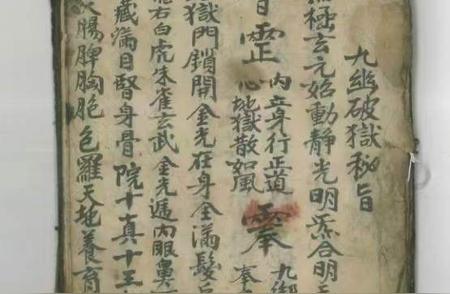 九幽破獄秘旨
極玄元始動靜光明炁合明
內立身行正道
心地獄散如風
獄門鎖開金光在身全滿髮
右白虎朱雀玄武金光遍內眼鼻
藏滿目腎身骨院十真十三
腸脾胸胞色羅天地養育